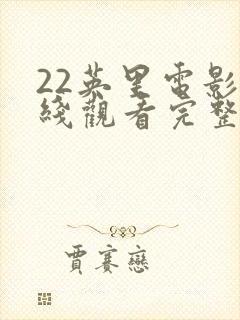 22英里電影
綫觀看完整
賈賽戀